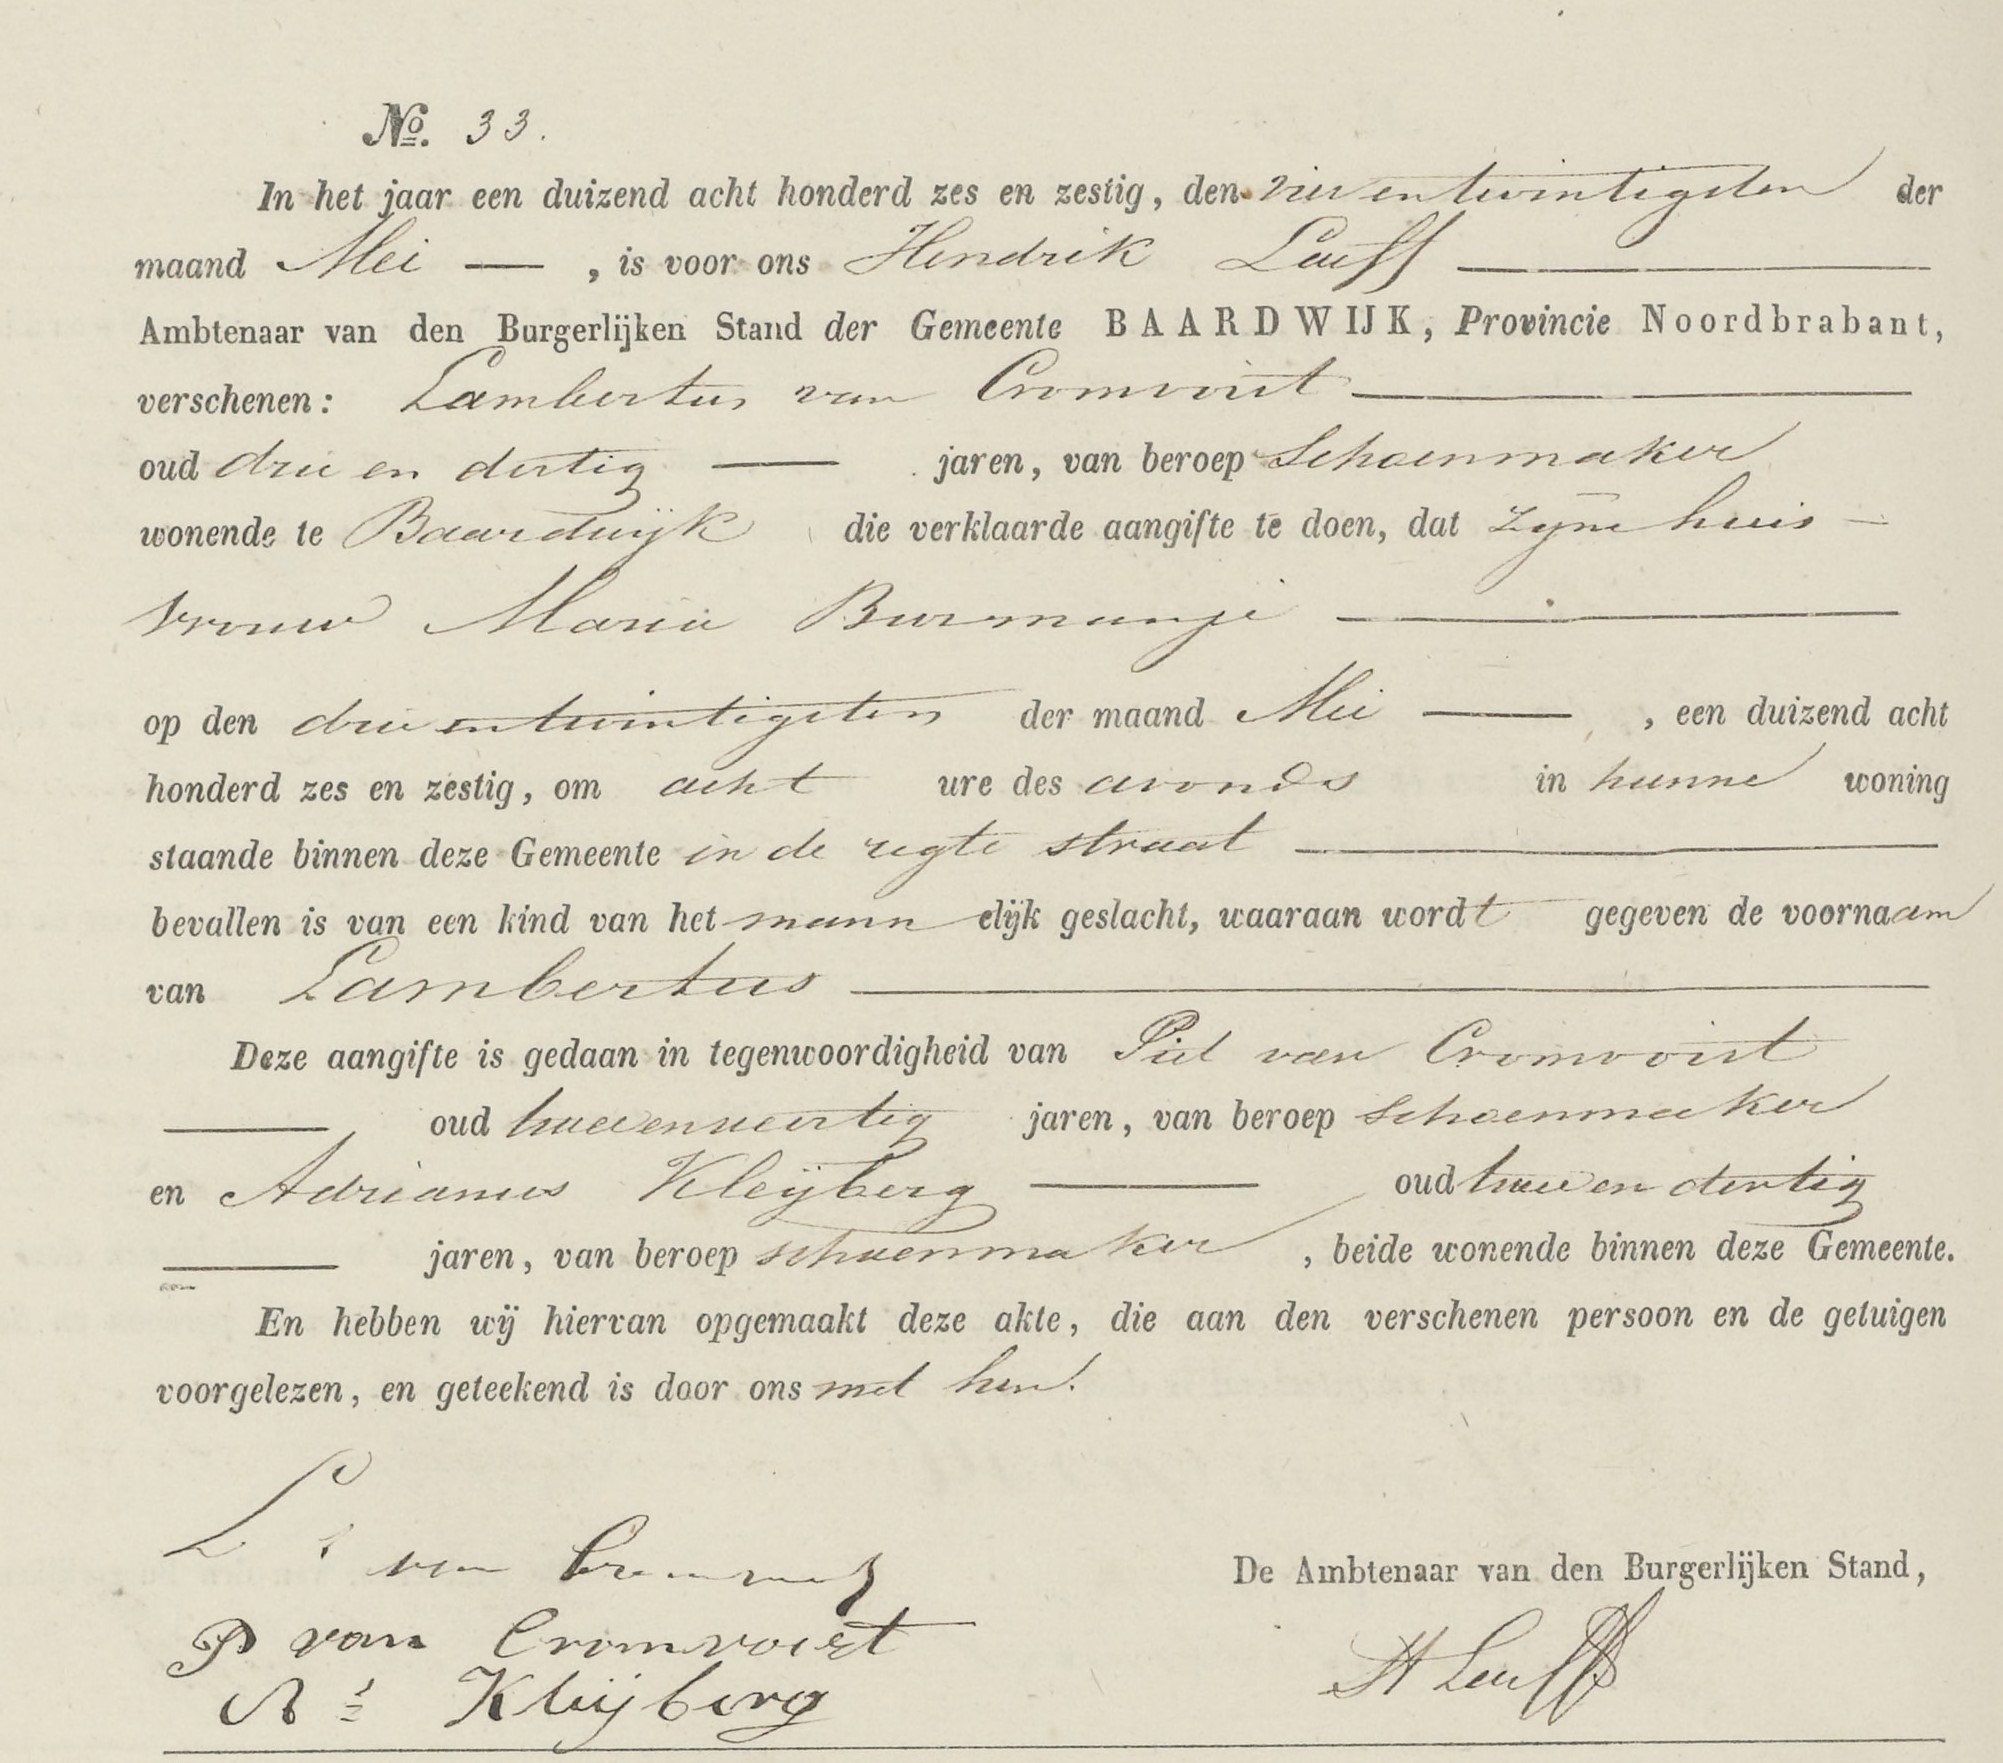 No. 33.
In het jaar een duizend acht honderd zes en zestig, den vier en twintigsten der
maand Mei — , is voor ons Hendrik Leuff —
Ambtenaar van den Burgerlijken Stand der Gemeente BAARDWIJK, Provincie Noordbrabant,
verschenen: Lambertus van Cromvoirt —
oud drie en dertig — jaren, van beroep Schoenmaker
wonende te Baardwijk die verklaarde aangifte te doen, dat zijne huis -
vrouw Maria Burmanje —
op den drie en twintigsten der maand Mei — , een duizend acht
honderd zes en zestig, om acht ure des avonds in hunne woning
staande binnen deze Gemeente in de regte straat —
bevallen is van een kind van het mannelijk geslacht, waaraan wordt gegeven de voornaam
van Lambertus —
Deze aangifte is gedaan in tegenwoordigheid van Piet van Cromvoirt
— oud twee en veertig jaren, van beroep schoenmaker
en Adrianus Kleijberg — oud twee en dertig
— jaren, van beroep schoenmaker , beide wonende binnen deze Gemeente.
En hebben wij hiervan opgemaakt deze akte, die aan den verschenen persoon en de getuigen
voorgelezen, en geteekend is door ons met hen.
L van
De Ambtenaar van den Burgerlijken Stand,
P van Cromvoirt
H Leuff
As Kleijberg